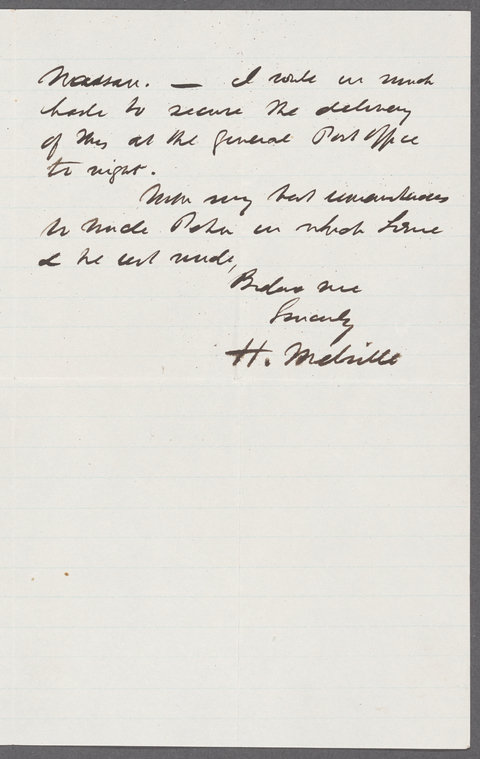 Nassau. — I write in much
haste to secure the delivery
of this at the General Post Office
to night.
With my best remembrances
to Uncle Peter in which Lizzie
& the rest unite,
Believe me
Sincerely
H. Melville